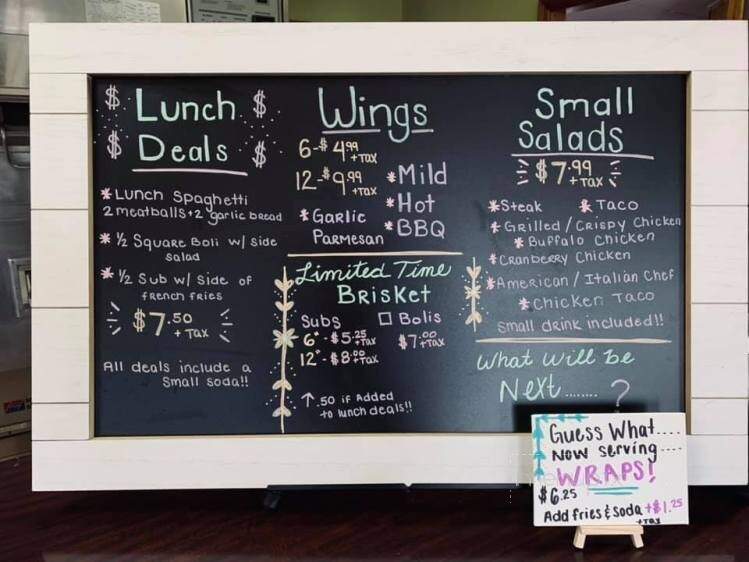 $ Lunch $
$ Deals $
* Lunch Spaghetti
2 meatballs + 2 garlic bread
* 1/2 Square Boli w/ side
salad
* 1/2 Sub w/ Side of
french fries
$7.50
+ Tax
All deals include a
Small soda!!
Wings
6-$4.99
+Tax
12-$9.99
+Tax
* Mild
* Hot
* BBQ
* Garlic
Parmesan
Limited Time
Brisket
Subs
6"-$5.25
+Tax
12"-$8.00
+Tax
□ Bolis
$7.00
+Tax
↑ .50 if Added
to lunch deals!!
Small
Salads
$7.99
+Tax
* Steak * Taco
* Grilled / Crispy Chicken
* Buffalo Chicken
* Cranberry Chicken
* American / Italian Chef
* Chicken Taco
Small drink included!!
What will be
Next.......?
Guess What....
Now serving....
WRAPS!
$6.25
Add fries & soda +$1.25
+Tax